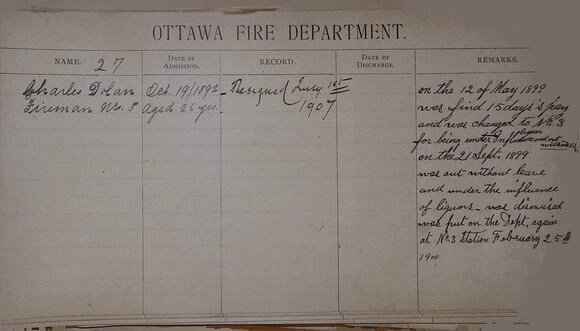 OTTAWA FIRE DEPARTMENT.
NAME. 27
DATE OF ADMISSION.
RECORD.
DATE OF DISCHARGE.
REMARKS.
Charles Dolan Oct. 19/1892 - Resigned July 1st
Fireman No. Aged 26 yrs. 1907
on the 12 of May 1899
was find 15 days's pay
and was changed to No 3
for being under Influence liquor and out without
on the 21 Sept. 1899
was out without leave
and under the influence
of liquors - was dismised
was put on the Dept. again
at No 3 Station February 25th
1900